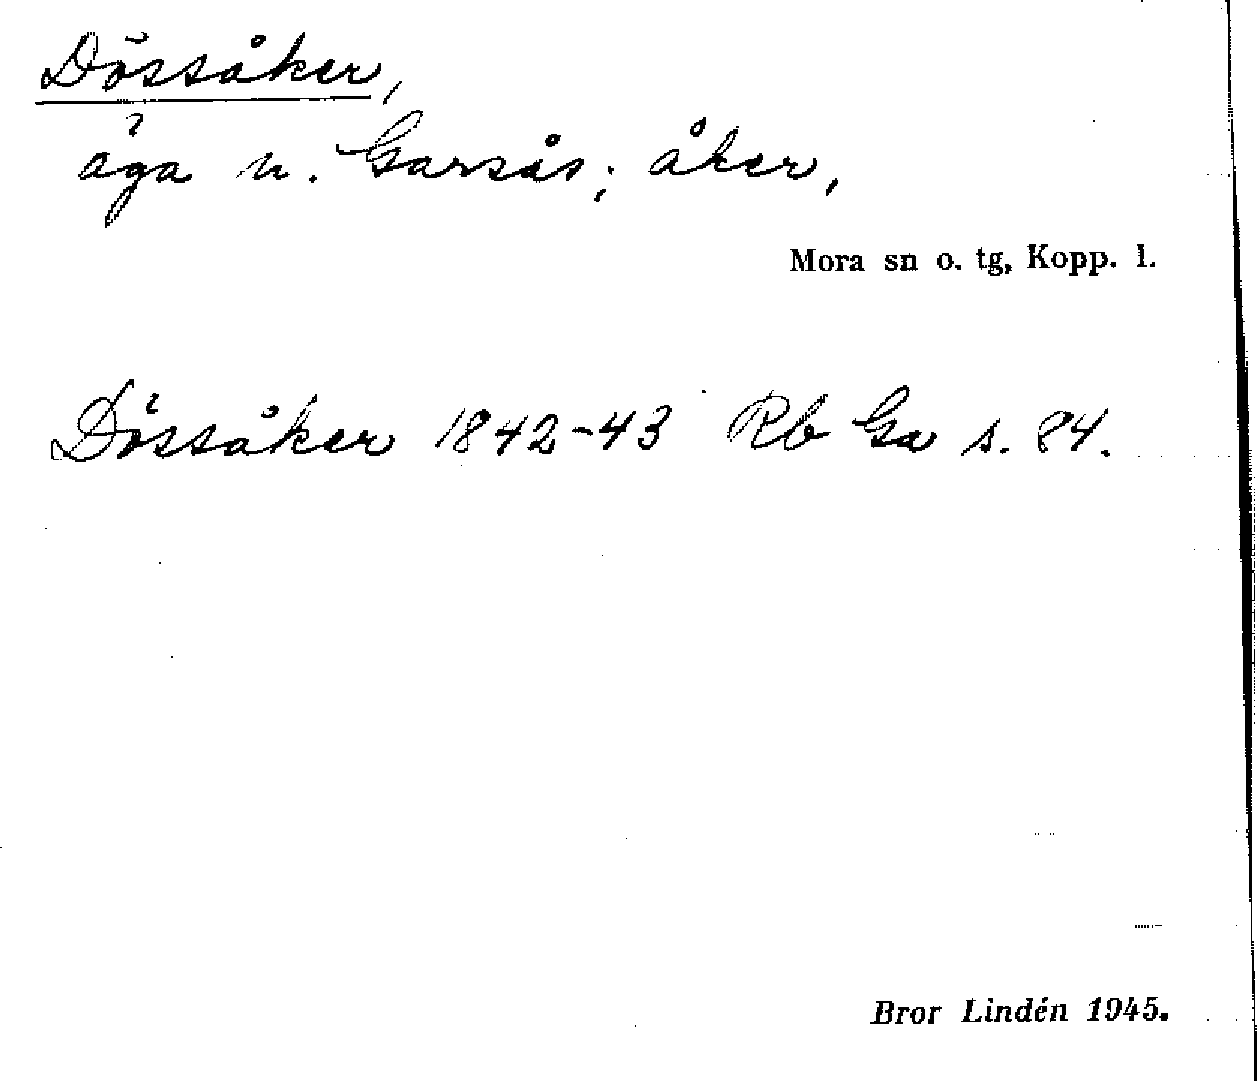 Dössåker,
äga n. Garsås; åker,
Mora sn o. tg, Kopp. l.
Dössåker 1842-43 Rb Ga s. 84.
Bror Lindén 1945.